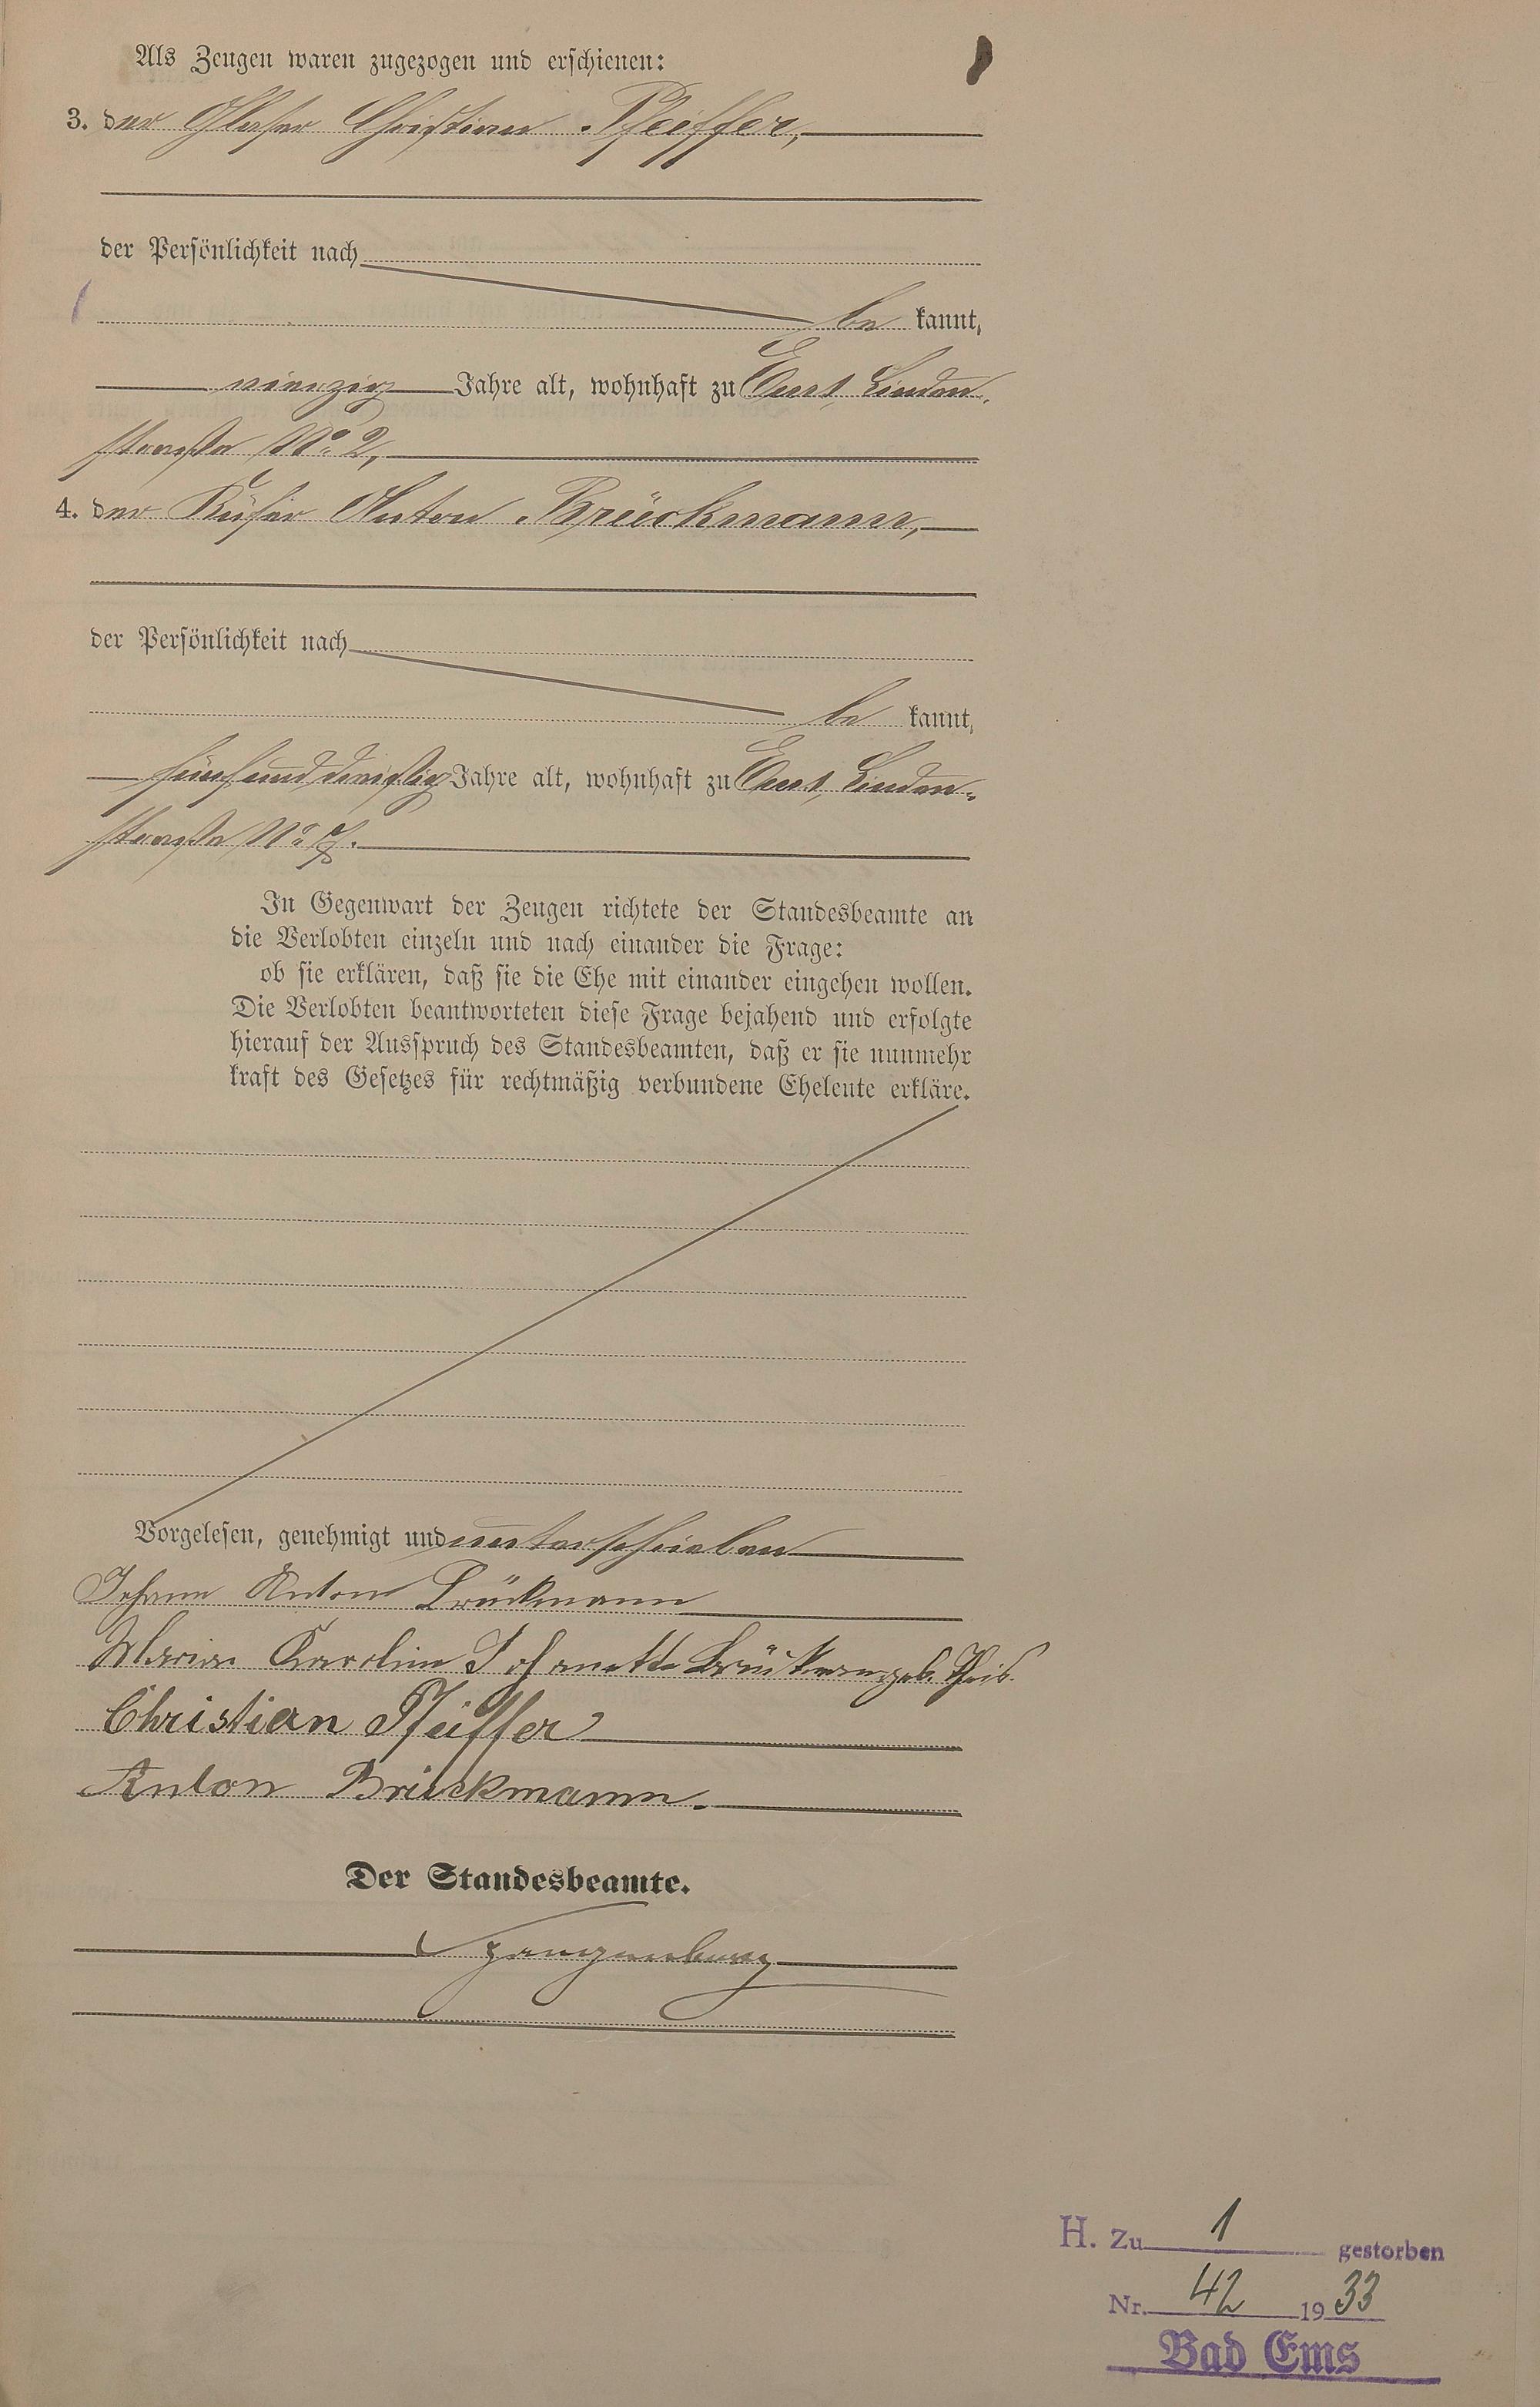 Als Zeugen waren zugezogen und erschienen:
3. der Glaser Christian Pfeiffer,
der Persönlichkeit nach
be kannt,
vierzig Jahre alt, wohnhaft zu Ems, Linden-
straße No. 2,
4. der Küfer Anton Brückmann,
der Persönlichkeit nach
be kannt,
fünfunddreißig Jahre alt, wohnhaft zu Ems, Linden-
straße No.
In Gegenwart der Zeugen richtete der Standesbeamte an
die Verlobten einzeln und nach einander die Frage:
ob sie erklären, daß sie die Ehe mit einander eingehen wollen.
Die Verlobten beantworteten diese Frage bejahend und erfolgte
hierauf der Ausspruch des Standesbeamten, daß er sie nunmehr
kraft des Gesetzes für rechtmäßig verbundene Eheleute erkläre.
Vorgelesen, genehmigt und unterschrieben
Johann Anton Brückmann
Maria Karolina Johanette Brückmann geb. Theis.
Christian Pfeiffer
Anton Brückmann.
Der Standesbeamte.
Spangenberg
H. Zu 1 gestorben
Nr. 42 1933
Bad Ems